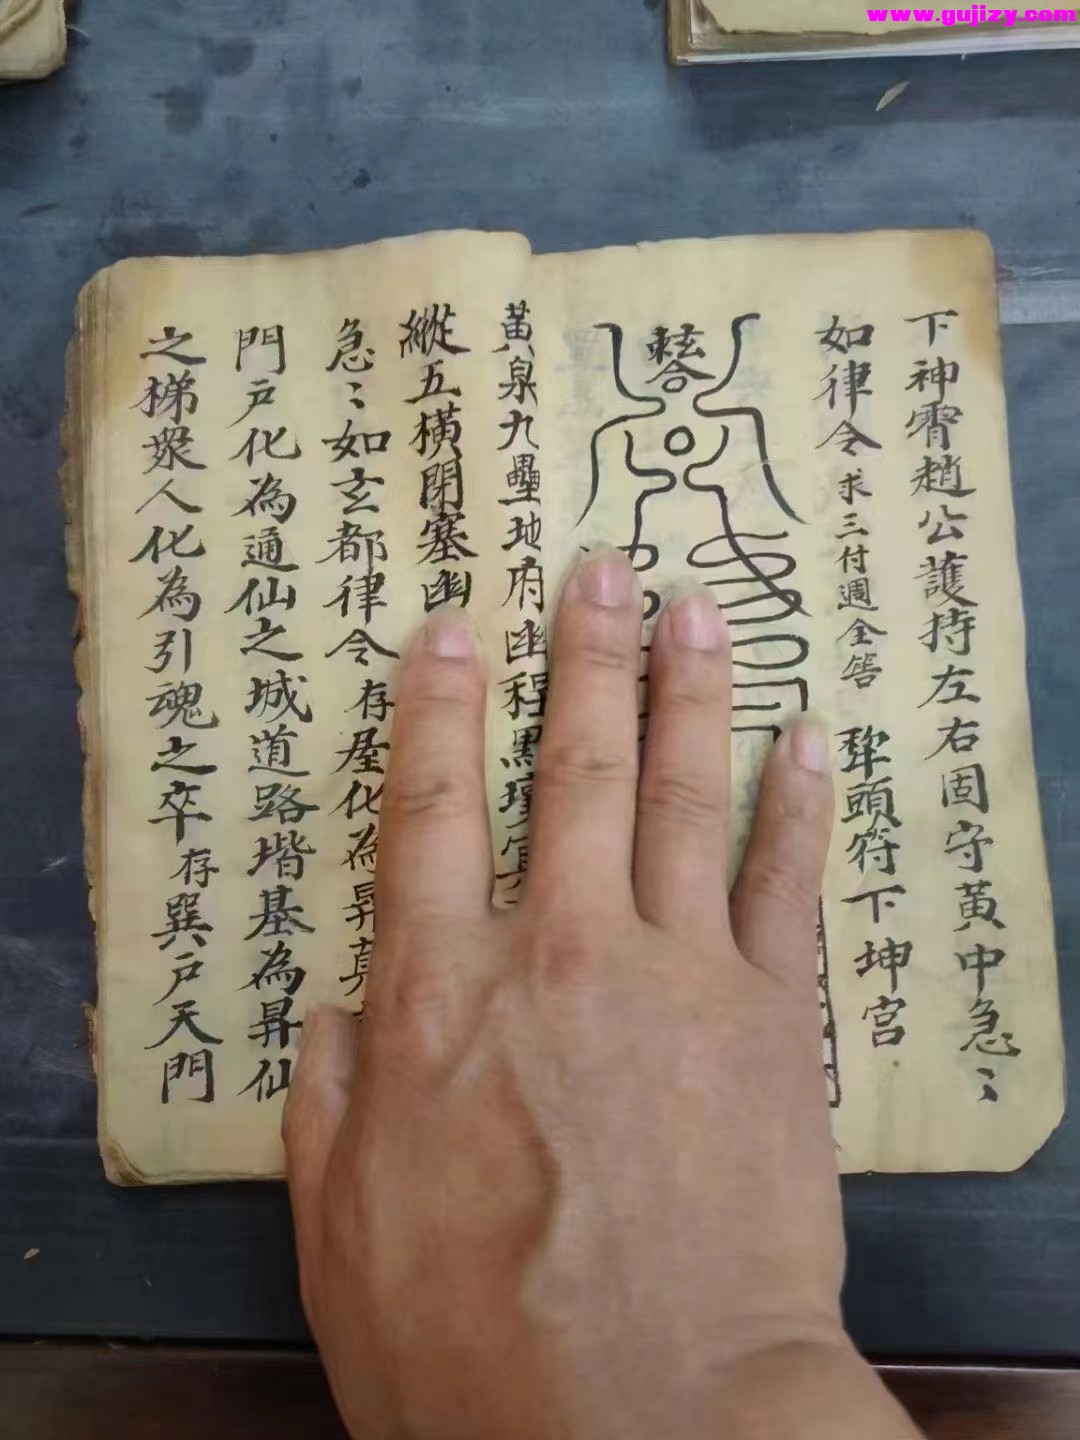 www.gujizy.com
下神霄趙公護持左右固守黃中急〻
如律令 求三付週全筶 犂頭符下坤宮
黃泉九壘地府幽程黑壇
縱五橫閉塞幽
急〻如玄都律令 存屋化為昇真
門戶化為通仙之城道路堦基為昇仙
之梯衆人化為引魂之卒 存巽戶天門